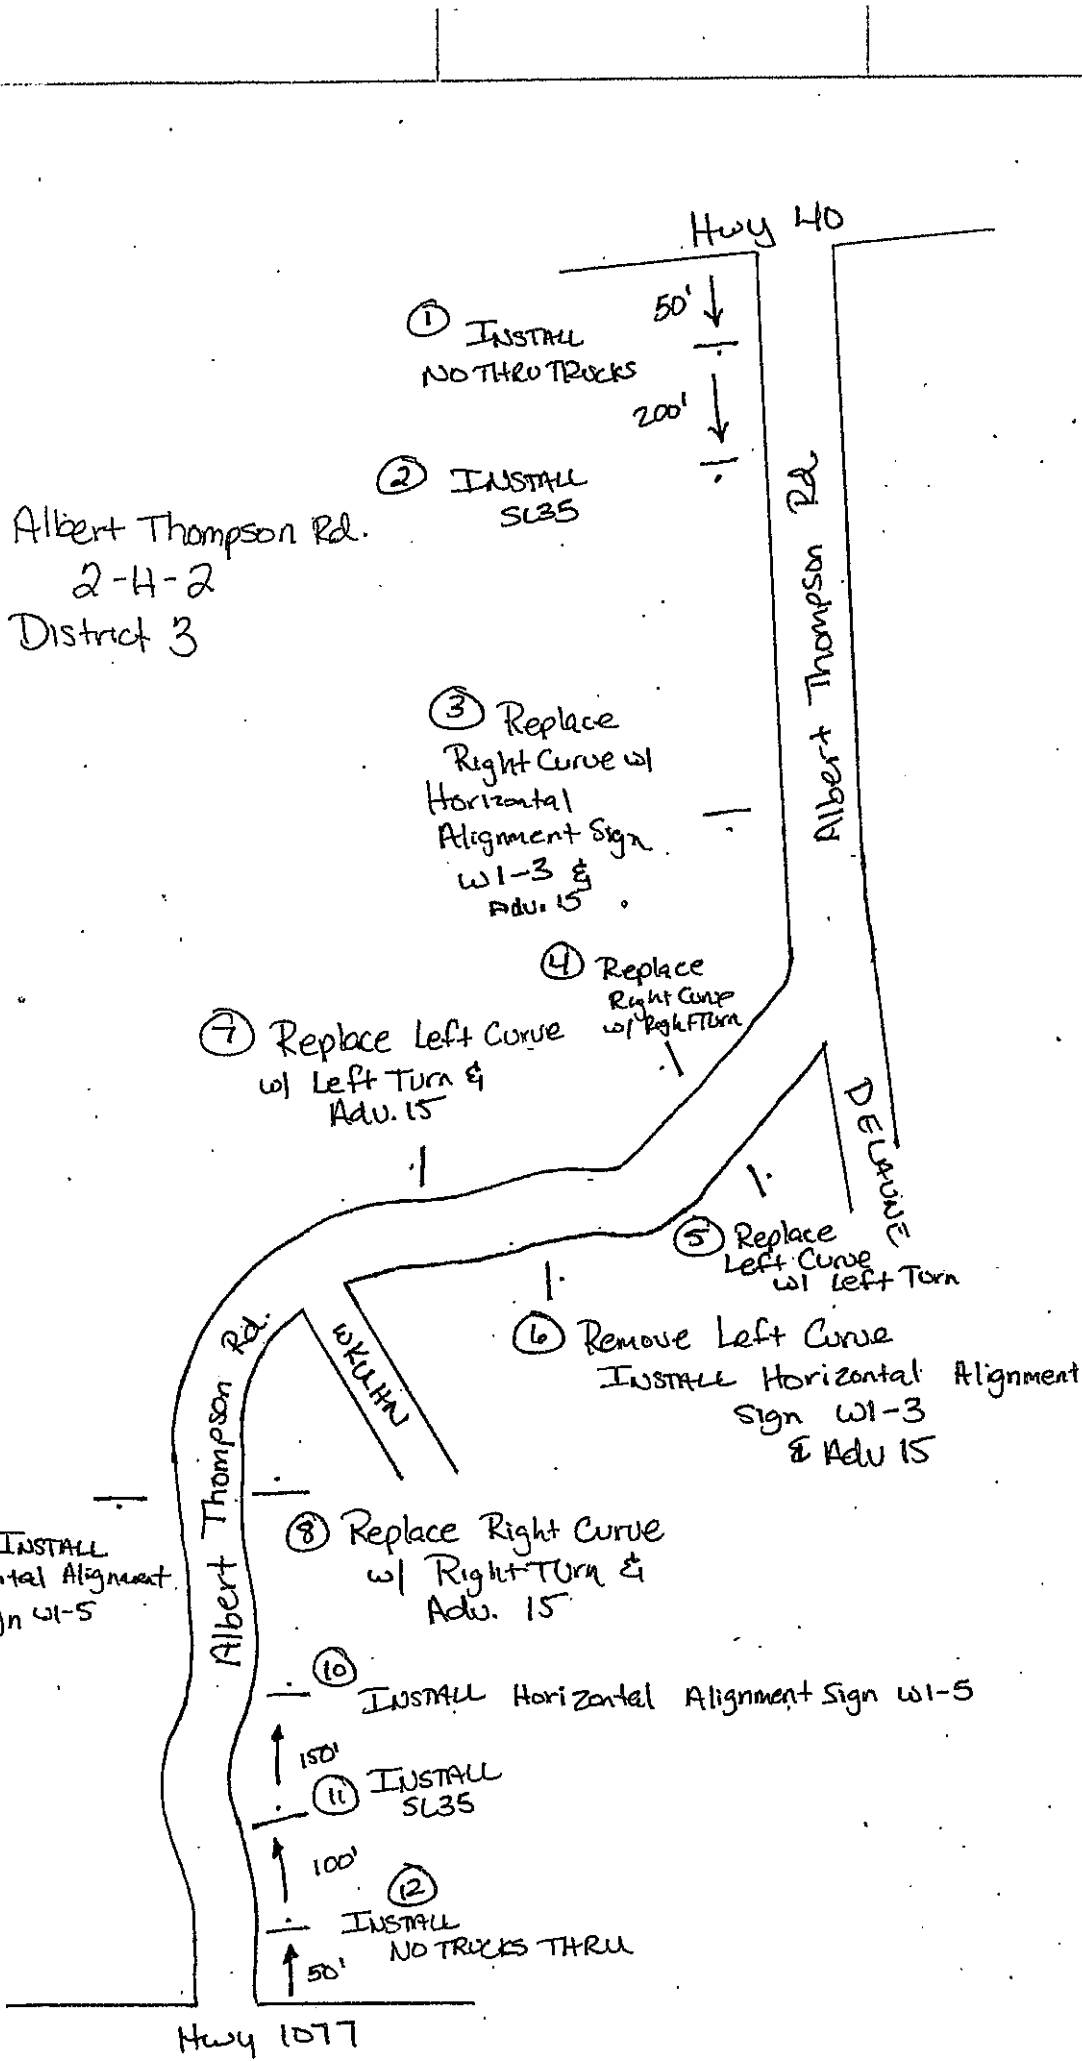 Hwy 40
50'
① INSTALL
NO THRU TRUCKS
200'
② INSTALL
SL35
Albert Thompson Rd.
2-H-2
District 3
Albert Thompson Rd
③ Replace
Right Curve w/
Horizontal
Alignment Sign
W1-3 &
Adv. 15
④ Replace
Right Curve
w/ Right Turn
⑦ Replace Left Curve
w/ Left Turn &
Adv. 15
DELAUNE
⑤ Replace
Left Curve
w/ Left Turn
⑥ Remove Left Curve
INSTALL Horizontal Alignment
Sign W1-3
& Adv 15
WKUHN
Albert Thompson Rd.
INSTALL
ntal Alignment
gn W1-5
⑧ Replace Right Curve
w/ Right Turn &
Adv. 15
⑩
INSTALL Horizontal Alignment Sign W1-5
150'
⑪ INSTALL
SL35
100'
⑫
INSTALL
NO TRUCKS THRU
50'
Hwy 1077